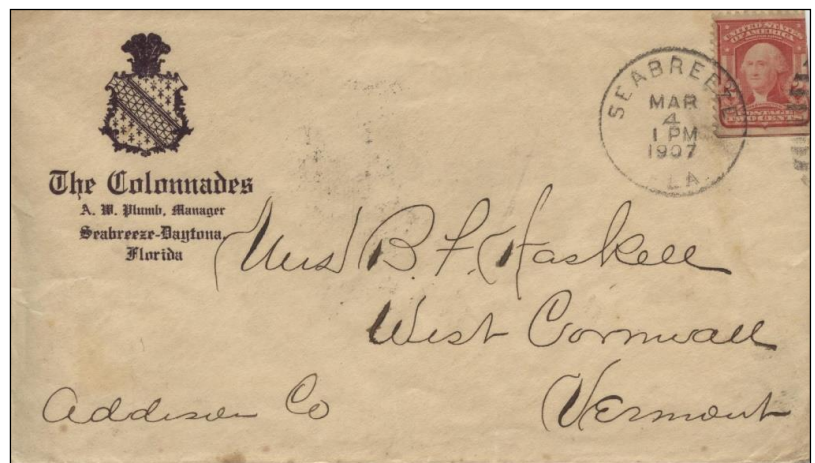 The Colonnades
A. W. Plumb, Manager
Seabreeze-Daytona,
Florida
SEABREEZE
MAR
4
1 PM
1907
FLA.
UNITED STATES
OF AMERICA
POSTAGE
TWO CENTS
Mrs B. F. Haskell
West Cornwall
Addison Co
Vermont